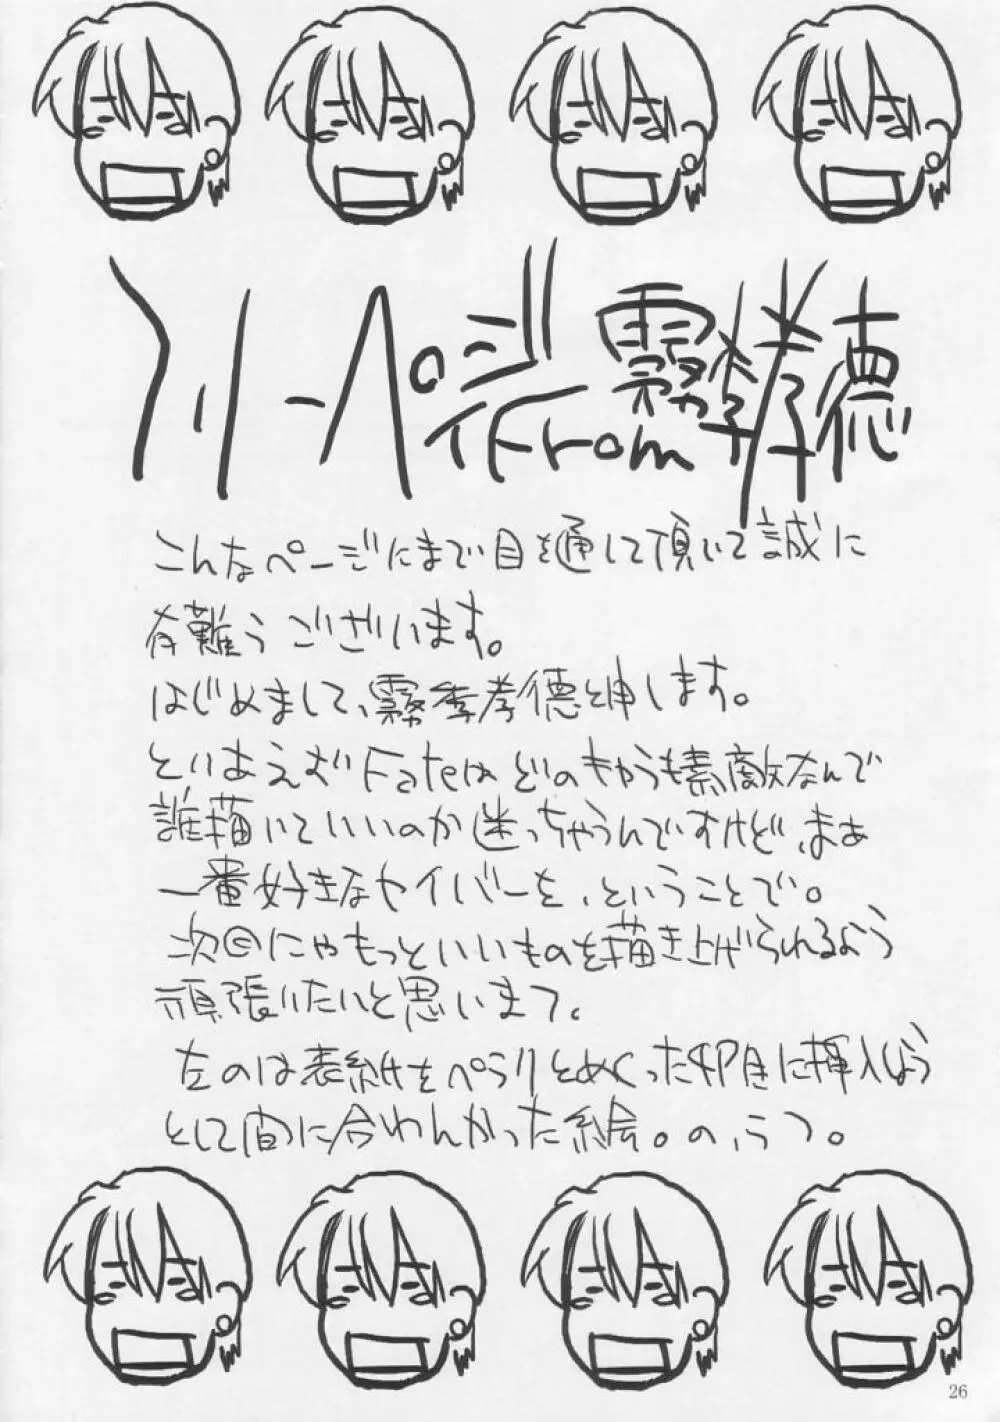 フリーペーヂ From 霧季孝徳
こんなページにまで目を通して頂いて誠に
有難うございます。
はじめまして、霧季孝徳と申します。
とりあえずFateはどのきゃらも素敵なんで
誰描いていいのか迷っちゃうんですけど、まぁ
一番好きなセイバーを、ということで。
次回にゃもっといいものを描き上げられるよう
頑張りたいと思いまフ。
左のは表紙をぺらりとめくった時に挿入しよう
として間に合わんかった絵。の、うつ。
26